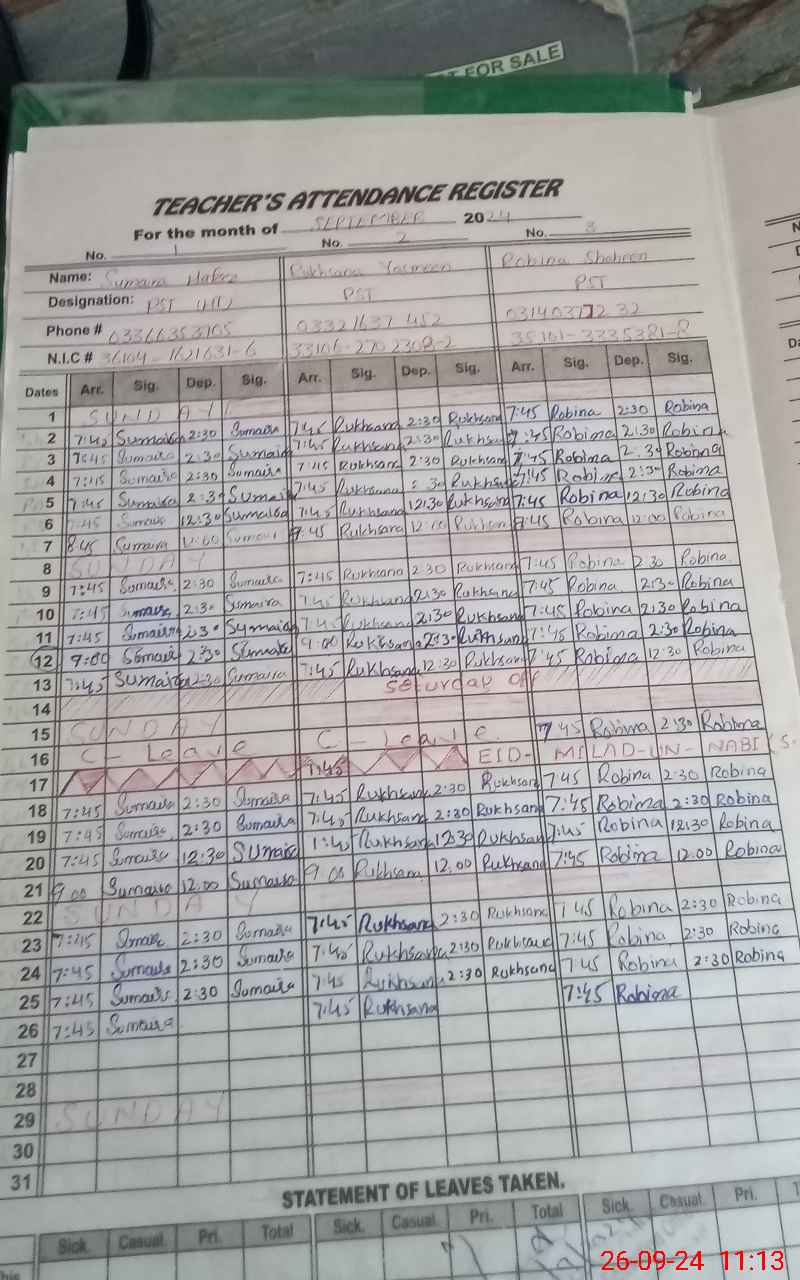 FOR SALE
TEACHER'S ATTENDANCE REGISTER
For the month of SEPTEMBER 2024
No. 1 No. 2 No. 3
Name: Sumaira Hafeez Rukhsana Yasmeen Robina Shaheen
Designation: PST PST PST
Phone # 03366353105 03321637452
N.I.C # 36104-1621631-6 33106-2702308-2 35161-3335381-8
Dates Arr. Sig. Dep. Sig. Arr. Sig. Dep. Sig. Arr. Sig. Dep. Sig.
1 SUNDAY
2 7:45 Sumaira 2:30 Sumaira 7:45 Rukhsana 2:30 Rukhsana 7:45 Robina 2:30 Robina
3 7:45 Sumaira 2:30 Sumaira 7:45 Rukhsana 2:30 Rukhsana 7:45 Robina 2:30 Robina
4 7:45 Sumaira 2:30 Sumaira 7:45 Rukhsana 2:30 Rukhsana 7:45 Robina 2:30 Robina
5 7:45 Sumaira 2:30 Sumaira 7:45 Rukhsana 2:30 Rukhsana 7:45 Robina 2:30 Robina
6 7:45 Sumaira 12:30 Sumaira 7:45 Rukhsana 12:30 Rukhsana 7:45 Robina 12:30 Robina
7 8:45 Sumaira 12:00 Sumaira Rukhsana 12:00 Rukhsana Robina 12:00 Robina
8 SUNDAY
9 7:45 Sumaira 2:30 Sumaira 7:45 Rukhsana 2:30 Rukhsana 7:45 Robina 2:30 Robina
10 7:45 Sumaira 2:30 Sumaira 7:45 Rukhsana 2:30 Rukhsana 7:45 Robina 2:30 Robina
11 7:45 Sumaira 2:30 Sumaira 7:45 Rukhsana 2:30 Rukhsana 7:45 Robina 2:30 Robina
12 9:00 Sumaira 2:30 Sumaira 9:00 Rukhsana 2:30 Rukhsana 7:45 Robina 2:30 Robina
13 7:45 Sumaira 12:30 Sumaira 7:45 Rukhsana 12:30 Rukhsana 7:45 Robina 12:30 Robina
14 Saturday off
15 SUNDAY
16 C-Leave C-Leave 7:45 Robina 2:30 Robina
17 7:45 EID-MILAD-UN-NABI (S.
18 7:45 Sumaira 2:30 Sumaira 7:45 Rukhsana 2:30 Rukhsana 7:45 Robina 2:30 Robina
19 7:45 Sumaira 2:30 Sumaira 7:45 Rukhsana 2:30 Rukhsana 7:45 Robina 2:30 Robina
20 7:45 Sumaira 12:30 Sumaira 7:45 Rukhsana 12:30 Rukhsana 7:45 Robina 12:30 Robina
21 9:00 Sumaira 12.00 Sumaira 9:00 Rukhsana 12.00 Rukhsana 7:45 Robina 12.00 Robina
22 SUNDAY
23 7:45 Sumaira 2:30 Sumaira 7:45 Rukhsana 2:30 Rukhsana 7:45 Robina 2:30 Robina
24 7:45 Sumaira 2:30 Sumaira 7:45 Rukhsana 2:30 Rukhsana 7:45 Robina 2:30 Robina
25 7:45 Sumaira 2:30 Sumaira 7:45 Rukhsana 2:30 Rukhsana 7:45 Robina 2:30 Robina
26 7:45 Sumaira 7:45 Rukhsana 7:45 Robina
27
28
29 SUNDAY
30
31
STATEMENT OF LEAVES TAKEN.
Sick. Casual. Pri. Total Sick. Casual. Pri. Total Sick. Casual. Pri.
26-09-24 11:13